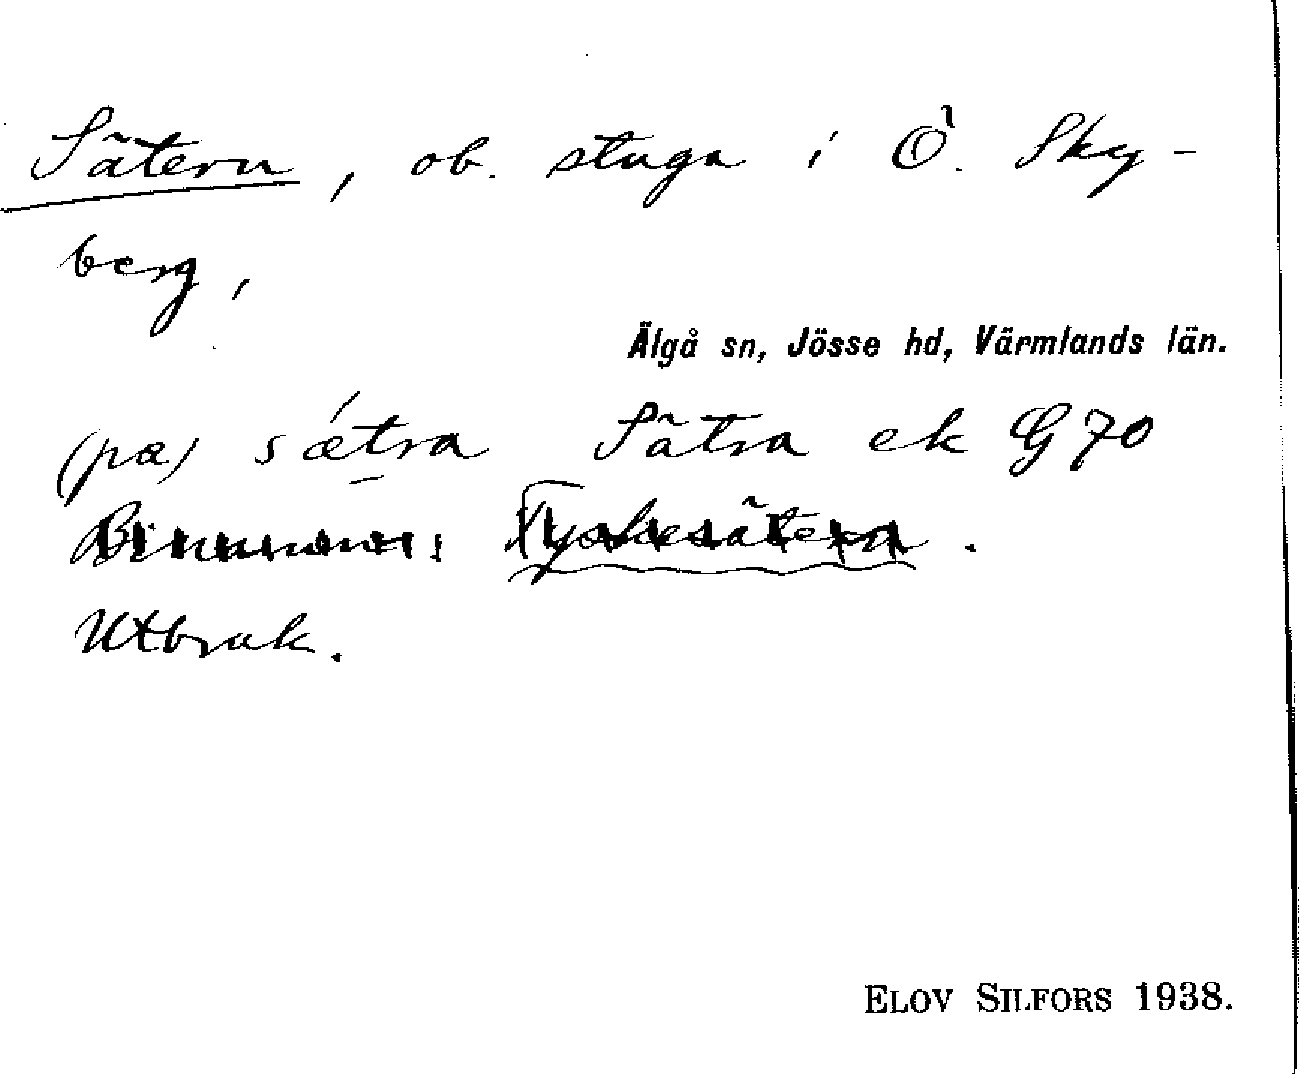 Sätern, ob. stuga i Ö. Sky-
berg,
Älgå sn, Jösse hd, Värmlands län.
(pæ) sǽtra Sätra ek G 70
Tyskesätern.
Utbruk.
ELOV SILFORS 1938.